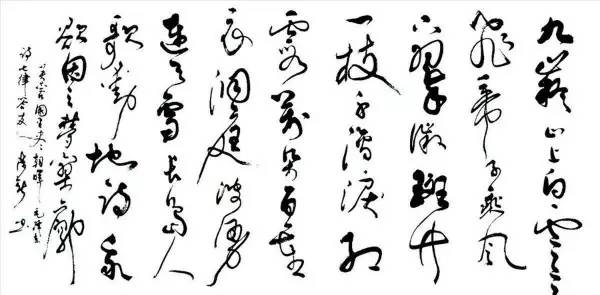 九嶷山上白云
飛帝子乘风
下翠微斑竹
一枝千滴淚红
霞萬朵百重
衣洞庭波涌
連天雪长島人
歌動地诗我
欲因之夢寥廓
芙蓉国里尽朝暉毛泽东
诗七律答友人